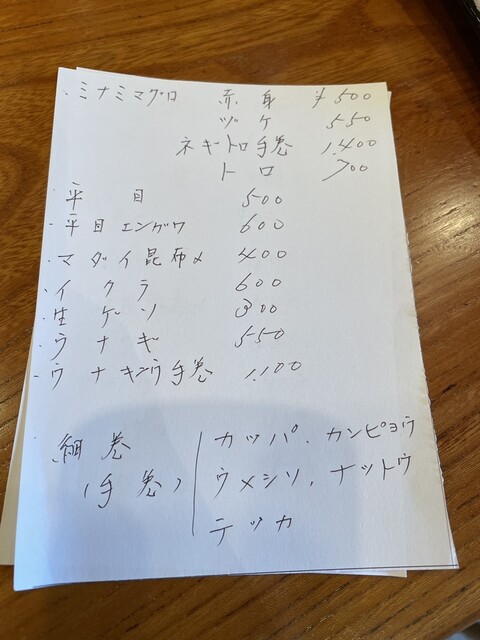 ・ミナミマグロ 赤身 ¥500
ヅケ 550
ネギトロ手巻 1.400
トロ 700
・平目 500
・平目エンガワ 600
・マダイ昆布〆 400
・イクラ 600
・生ゲソ 300
・ウナギ 550
・ウナキュウ手巻 1.100
・細巻 カッパ、カンピョウ
(手巻) ウメシソ、ナットウ
テッカ